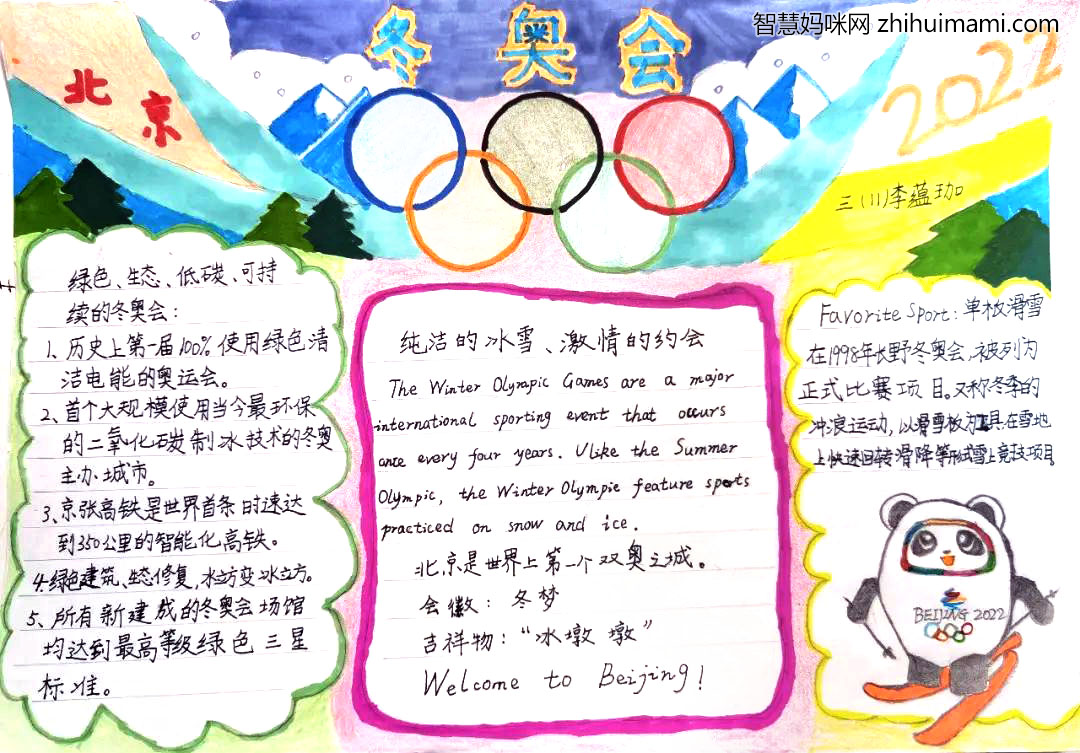 智慧妈咪网 zhihuimami.com
冬奥会
北京
2022
三(1)李蕴珈
绿色、生态、低碳、可持
续的冬奥会:
1、历史上第一届100%使用绿色清
洁电能的奥运会。
2、首个大规模使用当今最环保
的二氧化碳制冰技术的冬奥
主办城市。
3、京张高铁是世界首条时速达
到350公里的智能化高铁。
4.绿色建筑、生态修复,水立方变冰立方。
5、所有新建成的冬奥会场馆
均达到最高等级绿色三星
标准。
纯洁的冰雪、激情的约会
The Winter Olympic Games are a major
international sporting event that occurs
once every four years. Ulike the Summer
Olympic, the Winter Olympic feature sports
practiced on snow and ice.
北京是世界上第一个双奥之城。
会徽:冬梦
吉祥物:“冰墩墩”
Welcome to Beijing!
Favorite Sport:单板滑雪
在1998年长野冬奥会,被列为
正式比赛项目。又称冬季的
冲浪运动,以滑雪板为工具在雪地
上快速回转滑降等形式雪上竞技项目
BEIJING 2022